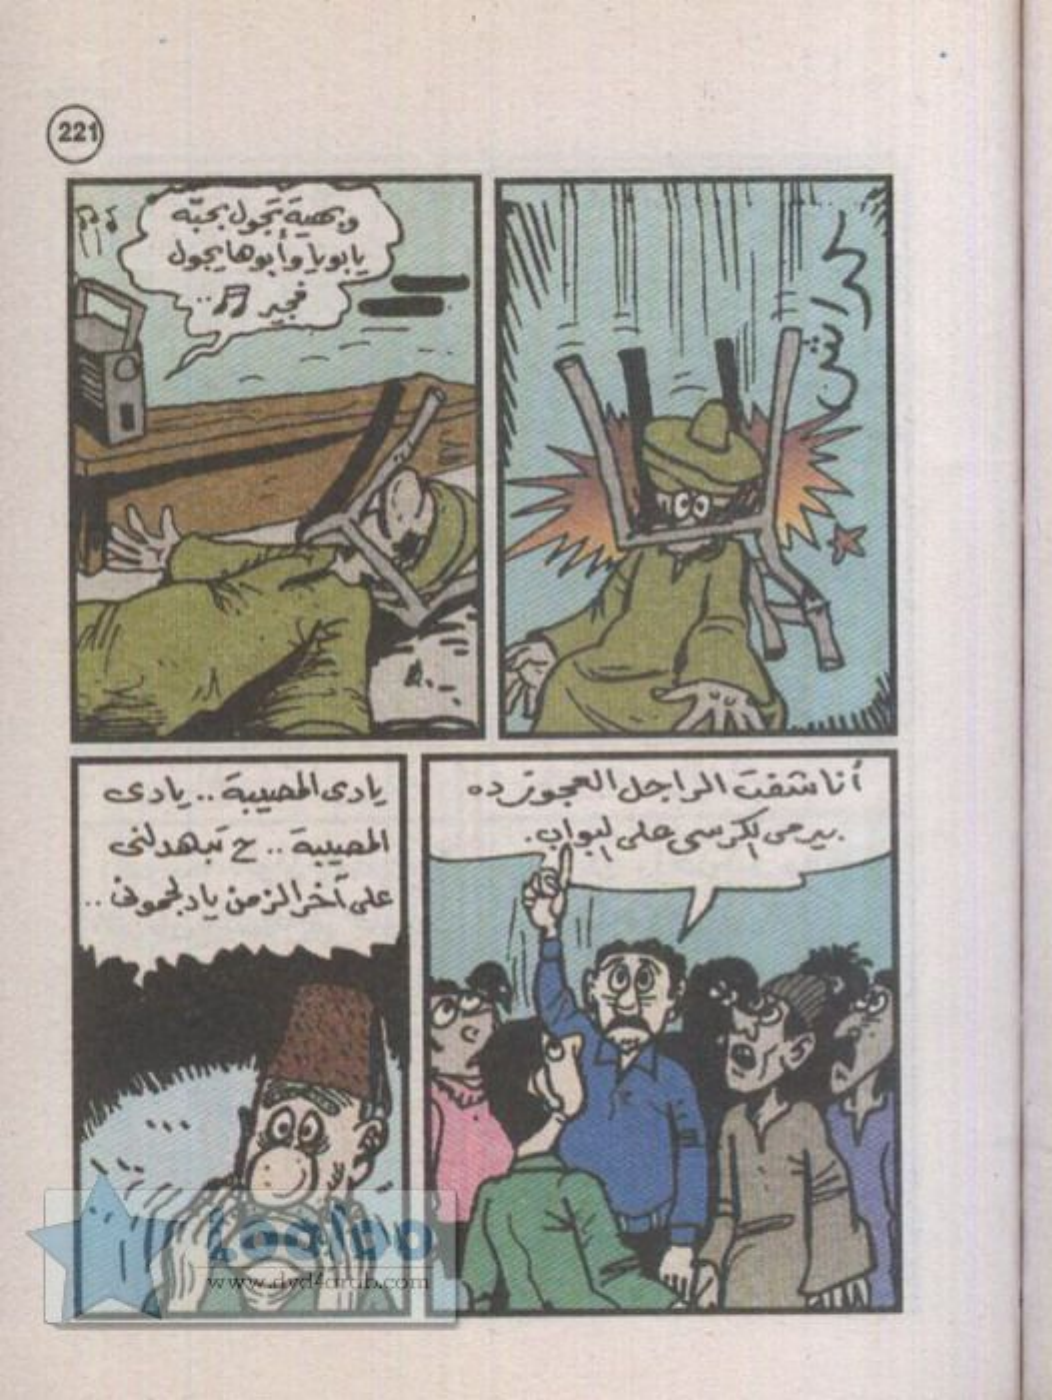 221
كراش
وبهية تجول بحبّه
يا بويا وأبوها يجول
فجير ..
أنا شفت الراجل العجوز ده
بيرمى الكرسى على البواب.
يادى المصيبة .. يادى
المصيبة .. ح تبهدلنى
على آخر الزمن يا دلجمونى ..
www.dvd4arab.com